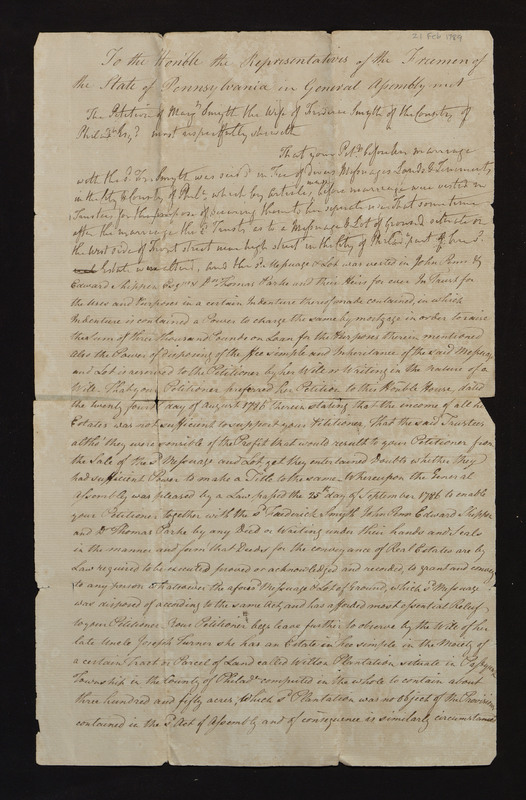 21 Feb 1789
To the Honble the Representatives of the Freemen of
the State of Pennsylvania in General Assembly met
The Petition of Margt Smyth the Wife of Frederic Smyth of the County of
Philada Esqr most respectfully sheweth
That your Petr before her marriage
with the sd Fre Smyth was seized in Fee of divers Messuages Lands & Tenements
in the City & County of Phila which by Articles before marriage were vested in
Trustees for the purpose of securing them to her separate use That some time
after the marriage the sd Trusts as to a Messuage & Lot of Ground situate on
the West side of Front street near high street in the City of Philada part of her sd
Estate was altered, and the sd Messuage & Lot was vested in John Ross Esqr
Edward Shippen Esqr & Dr Thomas Parke and their Heirs for ever In Trust for
the Uses and Purposes in a certain Indenture thereof made contained, in which
Indenture is contained a Power to charge the same by mortgage in order to raise
the Sum of three thousand Pounds on Loan for the Purposes therein mentioned
also the Power of disposing of the fee simple and Inheritance of the said Messuage
and Lot is reserved to the Petitioner by her Will or Writing in the nature of a
Will. That your Petitioner preferred her Petition to this Honble House, dated
the twenty fourth day of August 1786 therein stating that the income of all her
Estates was not sufficient to support your Petitioner, That the said Trustees
altho' they were sensible of the Profit that would result to your Petitioner from
the Sale of the sd Messuage and Lot yet they entertained Doubts whether they
had sufficient Power to make a Title to the same. Whereupon the General
Assembly was pleased by a Law passed the 25th day of September 1786 to enable
your Petitioner together with the sd Frederick Smyth John Ross Edward Shippen
and Dr Thomas Parke by any Deed or Writing under their hands and Seals
in the manner and form that Deeds for the conveyance of Real Estates are by
Law required to be executed proved or acknowledged and recorded, to grant and convey
to any person whatsoever the aforesd Messuage & Lot of Ground, which sd Messuage
was disposed of according to the same Act, and has afforded most essential Relief
to your Petitioner. Your Petitioner begs leave further to observe by the Will of her
late Uncle Joseph Turner she has an Estate in fee simple in the Moiety of
a certain Tract or Parcel of Land called Wilton Plantation situate in Passyunk
Township in the County of Philada computed in the whole to contain about
three hundred and fifty acres, which sd Plantation was no object of the Provisions
contained in the sd Act of Assembly and of consequence is similarly circumstanced